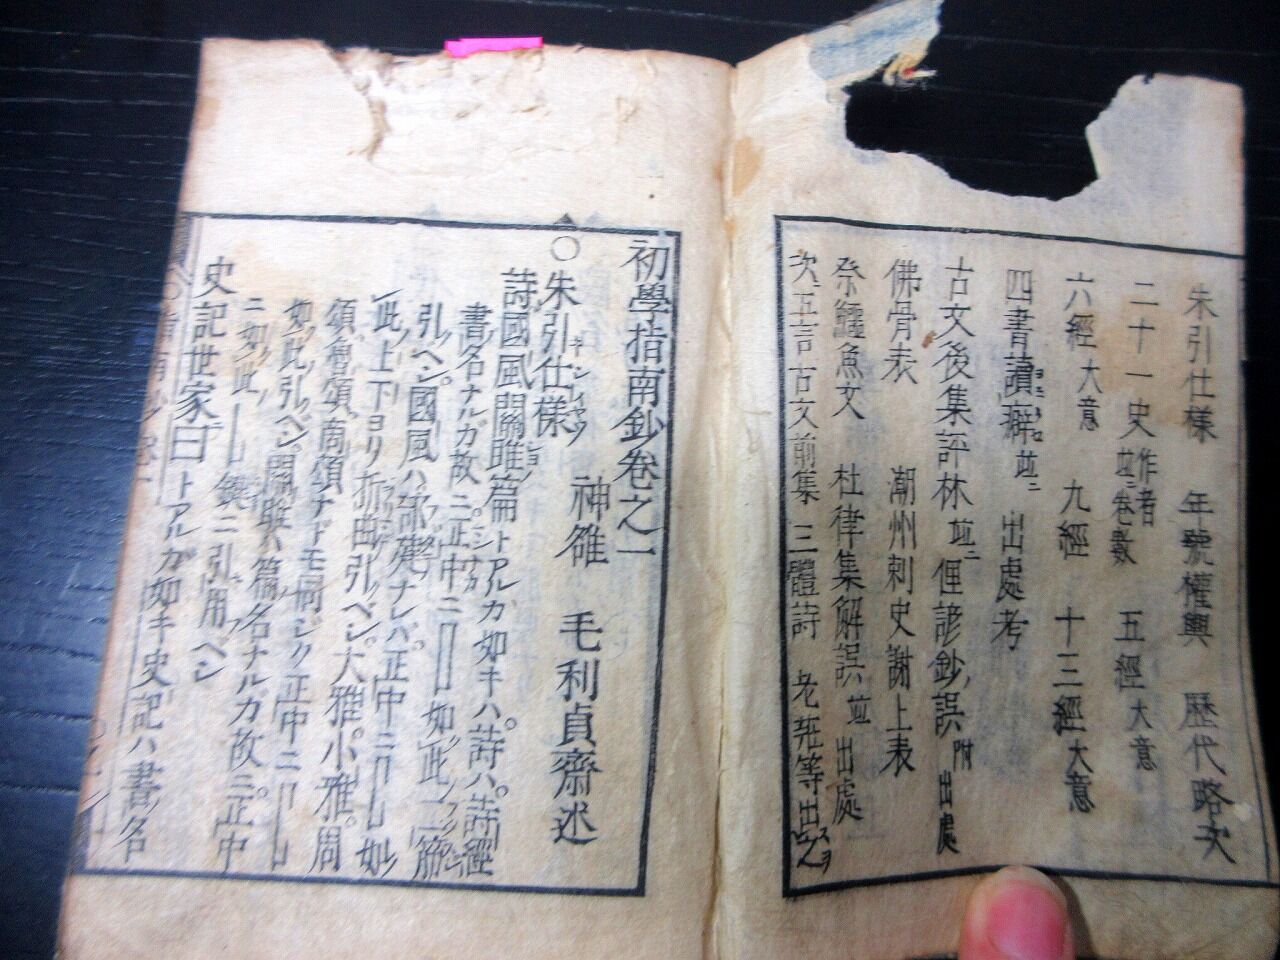 朱引仕様 年號權輿 歴代略次
二十一史作者並ニ卷數 五經大意
六經大意 九經 十三經大意
四書讀癖並ニ 出處考
古文後集評林並ニ俚諺鈔誤附出處
佛骨表 潮州刺史謝上表
祭鱷魚文 杜律集解誤並出處
次五言古文前集三體詩 老莊等出之
初學指南鈔卷之一
神雒 毛利貞齋述
○朱引仕様
詩國風關雎篇トアルカ如キハ詩ハ詩經
書名ナルガ故ニ正中ニ 如此二筋
引ヘシ國風ハ部建ナレバ正中ニ 如
此上下ヨリ折曲引ヘシ大雅小雅周
頌魯頌商頌ナドモ同ジク正中ニ
如此引ヘシ關雎ハ篇名ナルカ故ニ正中
ニ如此 鎖ニ引用ヘシ
史記世家曰トアルガ如キ史記ハ書名